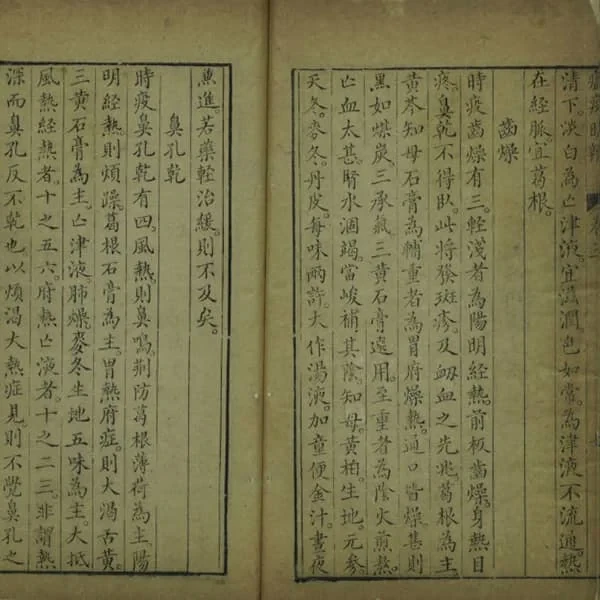 瘟疫明辨 卷三
清下。淡白為亡津液。宜滋潤。色如常。為津液不流通。熱
在經脈。宜葛根。
齒燥
時疫齒燥有三。輕淺者為陽明經熱。前板齒燥。身熱目
疼。鼻乾不得臥。此將發斑疹。及衂血之先兆。葛根為主。
黃芩知母石膏為輔重者為胃府燥熱。通口皆燥。甚則
黑如煤炭。三承氣。三黃石膏。選用。至重者為陰火煎熬。
亡血太甚。腎水涸竭。當峻補其陰。知母。黃柏。生地。元參。
天冬。麥冬。丹皮。每味兩許。大作湯液。加童便金汁。晝夜
兼進。若藥輕治緩。則不及矣。
鼻孔乾
時疫鼻孔乾有四。風熱。則鼻鳴。荊防葛根薄荷為主。陽
明經熱。則煩躁。葛根石膏為主。胃熱府症。則大渴舌黃。
三黃石膏為主。亡津液。肺燥。麥冬生地五味為主。大抵
風熱經熱者。十之五六。府熱亡液者。十之二三。非謂熱
深而鼻孔反不乾也。以煩渴大熱症見。則不覺鼻孔之